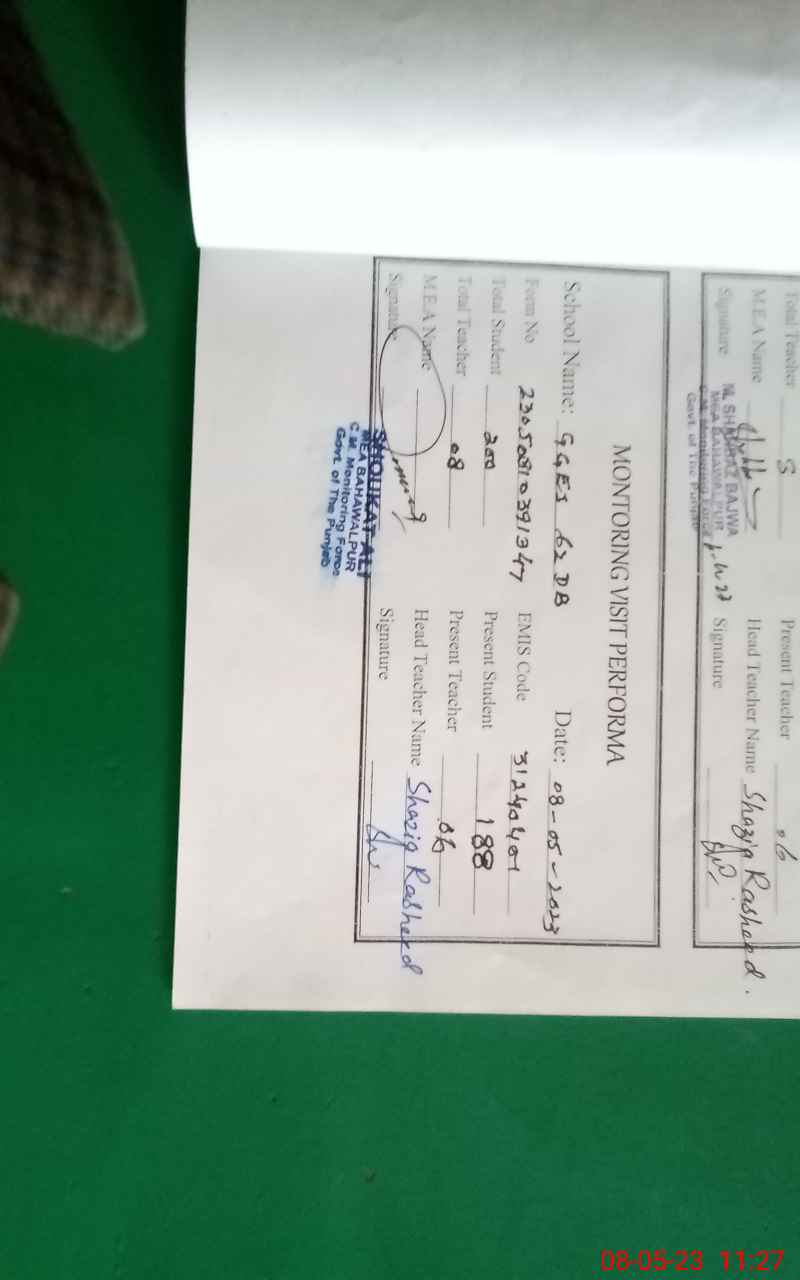 Total Teacher 8 Present Teacher 06
M.E.A Name Head Teacher Name Shazia Rasheed.
Signature Signature
M. SHAHBAZ BAJWA
MEA BAHAWALPUR
C.M. Monitoring Force
Govt. of The Punjab
MONTORING VISIT PERFORMA
School Name: GGES 62 DB Date: 08-05-2023
Form No 23050810391347 EMIS Code 31240401
Total Student 200 Present Student 188
Total Teacher 08 Present Teacher 06
M.E.A Name Head Teacher Name Shazia Rasheed
Signature Signature
SHOUKAT ALI
MEA BAHAWALPUR
C.M. Monitoring Force
Govt. of The Punjab
08-05-23 11:27